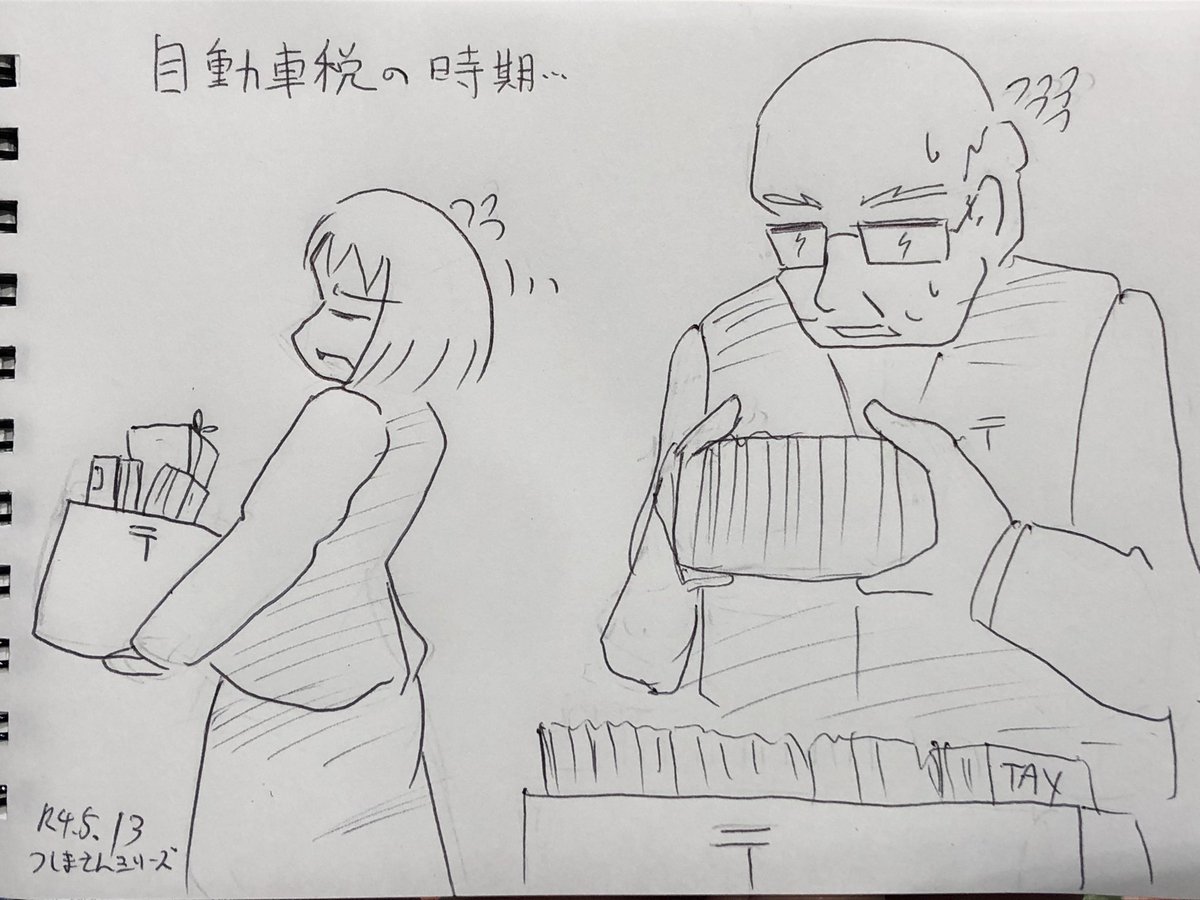 自動車税の時期…
〒
〒
TAX
〒
R4.5.13
つしまさんシリーズ